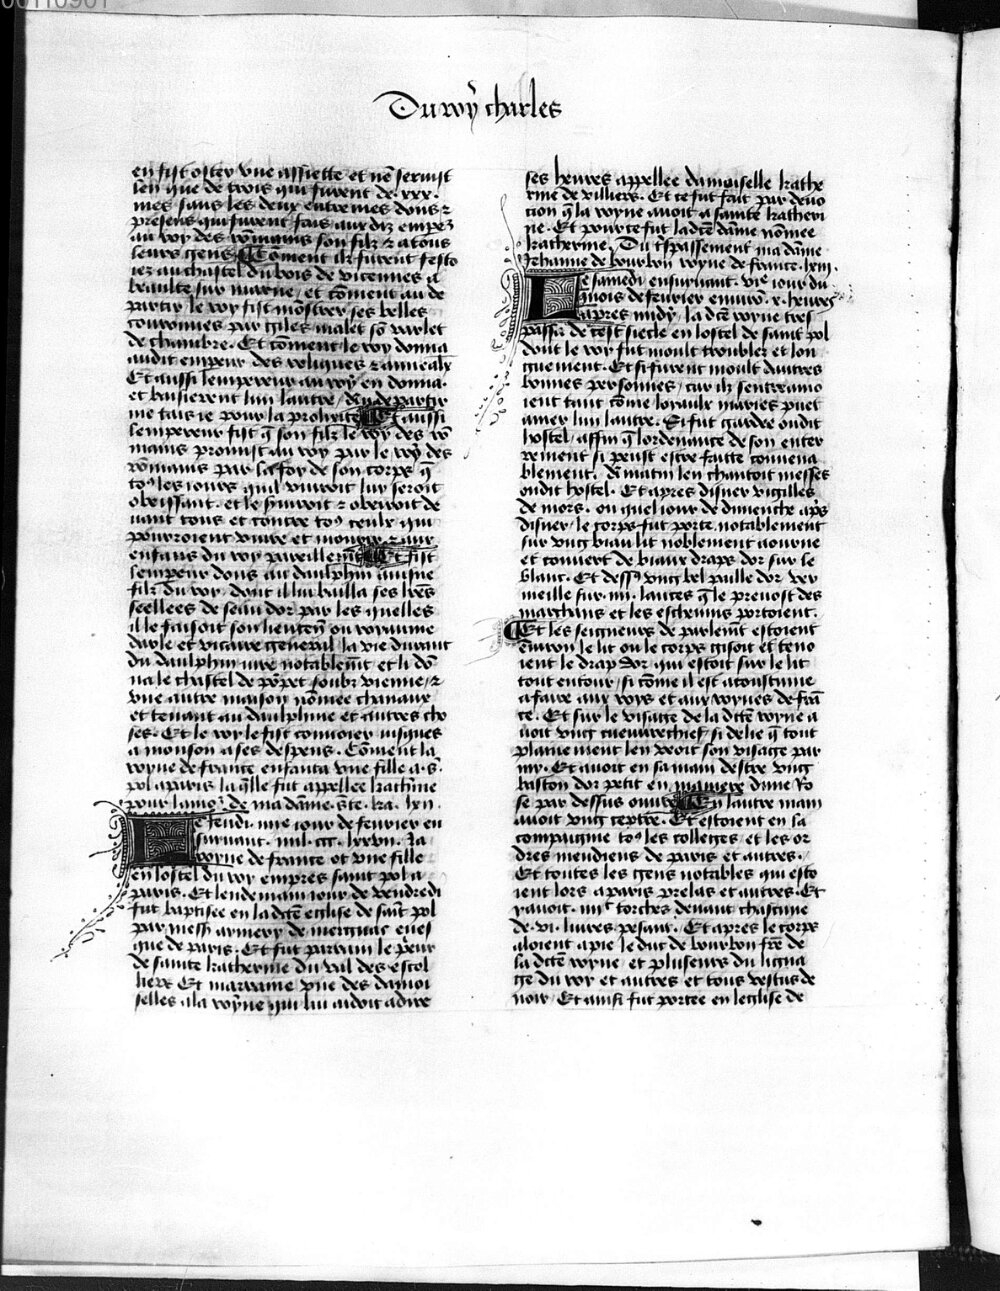 00110901
Du roy charles
en fist oster vne assiette et ne seruist
len que de trois qui furent de .xxx.
mes sans les deux entremes dons ⁊
presens qui furent fais aud͛ empeͬ
au roy des ro͞mains son filz ⁊ a tous
leurs gens ¶ Coment ilz furent festo
iez au chastel du bois de vicennes a
beaulte sur marne / et co͞ment au de
partir le roy fist mo͞strer ses belles
couronnes par giles malet so͞ varlet
de chambre. Et co͞ment le roy donna
audit empeur des reliques ⁊ anneaulx
Et aussi lempereur au roy en donna.
et baisierent lun lautre /
me tais ie pour la prolixite ¶ Et aussi
lempereur fist q͞ son filz le roy des ro͞
mains promist au roy par le roy des
ro͞mains par la foy de son corps q͞
to⁹ les iours quil viuroit luy seroit
obeissant. et le seruiroit ⁊ obeiroit de
uant tous et contre to⁹ ceulx qui
pourroient viure et mourir ⁊ aux
enfans du roy pareillem͞t ¶ Et fist
lempeur dons au daulphin aisne
filz du roy. dont il lui bailla ses lr͞es
seellees de seau dor par les quelles
il le faisoit son lieuten͞t ou royaume
darle et vicaire general la vie durant
du daulphin notablem͞t et li do͞
na le chastel de po͞pet soubz vienne / ⁊
vne autre maison no͞mee chanaux
et tenant au daulphine et autres cho
ses. Et le roy le fist conuoier iusques
a monson a ses despens. Co͞ment la
royne de france enfanta vne fille a .s.
pol a paris la q͞lle fut appellee kath͞ine
pour lamoͬ de ma da͞me s͞te ka. lxii.
Le ieudi .iiiie iour de feurier en
suruant .mil .ccc. lxxvii. la
royne de france ot vne fille
en lostel du roy empres saint pol a
paris. Et lendemain iour de vendredi
fut baptisee en ladc͞te eglise de sai͞t pol
par mess͛ aymery de eues
que de paris. Et fut parrain le p͛eur
de sainte katherine du val des escol
liers Et marraine vne des damoi
selles a la royne qui lui aidoit a dire
ses heures appellee damoiselle kathe
rine de villiers. Et ce fut fait par deuo
cion q͞ la royne auoit a sainte katheri
ne. Et pour ce fut ladc͞te da͞me no͞mee
katherine. Du t͛spassement ma da͞me
Jehanne de bourbon royne de france .lxiii.
Le samedi ensuruant .vie iour du
mois de feurier enuiro͞ .x. heures
apres midy / la dc͞te royne tres
passa de cest siecle en lostel de saint pol
dont le roy fut moult troublez et lon
guement. Et si furent moult dautres
bonnes personnes / car ilz sentreamo
ient tant co͞me loyaulx maries puet
amer lun lautre. Si fut gardee oudit
hostel / affin q͞ lordenance de son enter
rement si peust estre faitte conuena
blement. de matin len chantoit messes
oudit hostel. Et apres disner vigilles
de mors. ou quel iour de dimenche ap͛s
disner / le corps fut porte notablement
sur vng biau lit noblement aourne
et couuert de biaux draps dor sur le
blanc. Et dess⁹ vng bel paille dor ver
meille sur .iiii. lances q͞ le preuost des
marchans et les escheuins portoient.
¶ Et les seigneurs de parlem͞t estoient
enuiro͞ le lit ou le corps gisoit et teno
ient le drap dor qui estoit sur le lit
tout entour / si co͞me il est acoustume
a faire aux roys et aux roynes de fra͞
ce. Et sur le visage de la dc͞te royne a
uoit vng cueuurechief si delie q͞ tout
plainement len veoit son visage par
my. Et auoit en sa main destre vng
baston dor petit en maniere dune ro
se par dessus ouure ¶ En lautre main
auoit vng ceptre. Et estoient en sa
compaignie to⁹ les colleges et les or
dres mendiens de paris et autres.
Et toutes les gens notables qui esto
ient lors a paris prelas et autres. Et
y auoit .iiiic torches deuant chascune
de .vi. liures pesant. Et apres le corps
aloient a pie le duc de bourbon fr͞e de
la dc͞te royne et plusieurs du ligna
ge du roy et autres et tous vestus de
noir. Et ainsi fut portee en leglise de